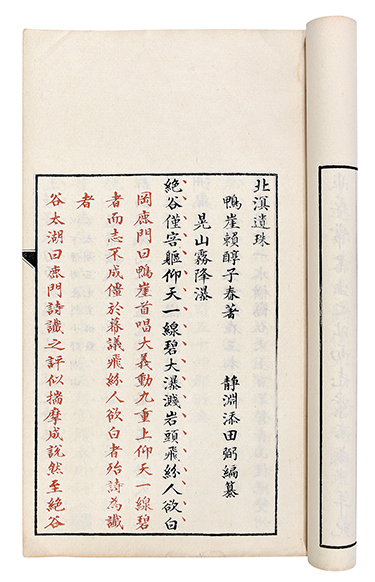 北溟遺珠
鴨崖賴醇子春著　靜淵添田弼編纂
晃山霧降瀑
絶谷僅容軀仰天一線碧大瀑濺岩頭飛絲人欲白
岡鹿門曰鴨崖首唱大義動九重上仰天一線碧
者而志不成僵於幕議飛絲人欲白者殆詩為讖
者
谷太湖曰鹿門詩讖之評似揣摩成說然至絶谷